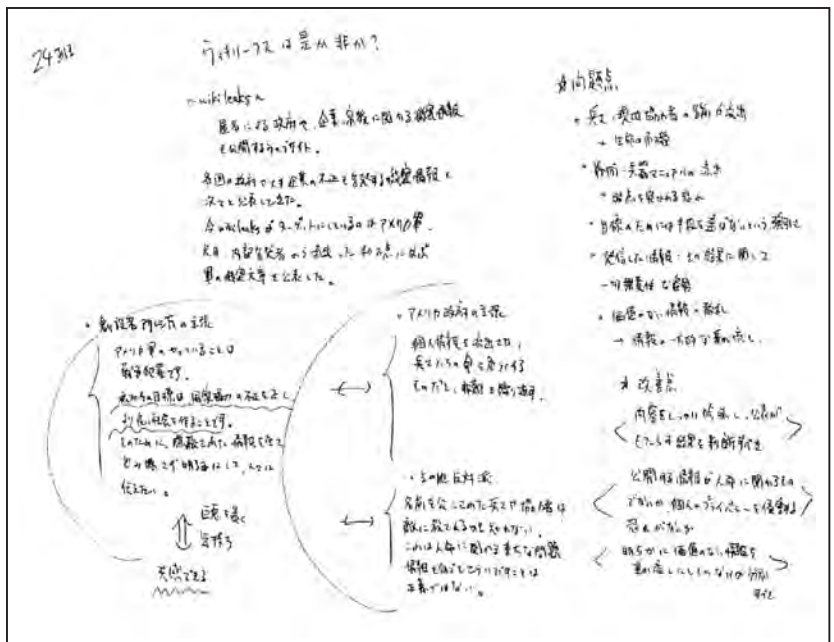 ウィキリークスは是か非か？
〜wikileaks〜
匿名による政府や、企業、宗教に関わる機密情報
を公開するウェブサイト。
各国の政府や大手企業の不正を告発する機密情報を
次々と公表してきた。
今wikileaksがターゲットにしているのはアメリカ軍。
軍の機密文書を公表した。
・創設者 の主張
アメリカ軍のやっていることは
戦争犯罪です。
の目標は の不正を正し、
社会を作ることです。
そのために、隠蔽された情報を全て
明らかにして、人々に
伝えたい。
巨悪を暴く
気持ち
共感できる
・アメリカ政府の主張
個人情報を流出させ、
兵士たちの命を危うくする
ものだと、非難を繰り返す。
・その他反対派
名前を公にされた兵士や協力者は
敵に殺されるかもしれない。
これは人命に関わる重大な問題
情報を何でもこういうことは
正義ではない。
問題点
・兵士、現地協力者の名前が流出
→ 生命の危機
・戦術・兵器マニュアルの流出
・弱点を突かれる恐れ
・目標のためには手段を選ばないという強引さ
・発信した情報・その結果に関して
無責任な姿勢
・価値のない情報の散乱
→ 情報の一方的な垂れ流し。
改善点
内容をしっかり吟味し、公表が
もたらす結果を判断すべき
公開する情報が人命に関わるもの
でないか、個人のプライバシーを侵害する
恐れがないか
明らかに価値のない情報を
垂れ流しにしていないか
すべき